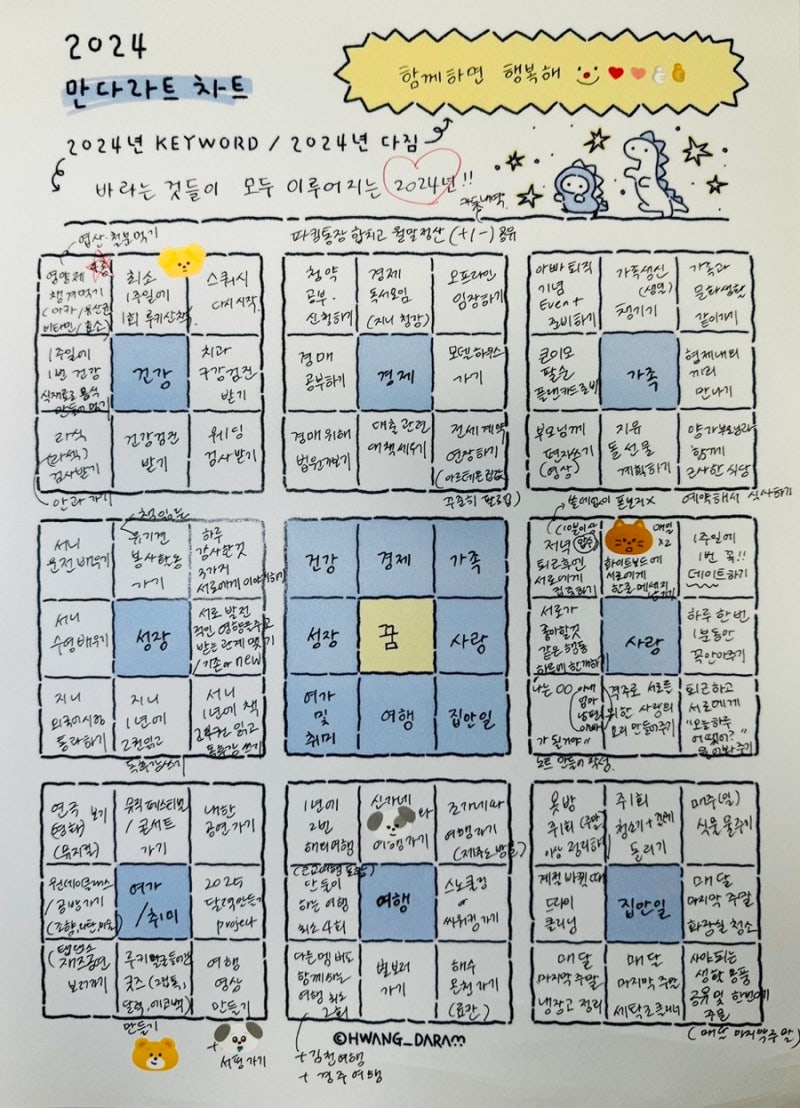 2024
만다라트 차트
함께하면 행복해
2024년 KEYWORD / 2024년 다짐
바라는 것들이 모두 이루어지는 2024년!!
엽산·철분먹기
파킹통장 합치고 월말정산 (+/-) 공유
영양제
챙겨먹기
비타민/효소)
최소
1주일에
1회 루키산책
스쿼시
다시 시작
1주일에
1번 건강
식재료로 음식
만들어 먹기
건강
치과
구강검진
받기
라식
(라섹)
검사받기
건강검진
받기
웨딩
검사받기
안과 가기
청약
공부·
신청하기
경제
독서모임
(지니 청강)
오프라인
임장하기
경매
공부하기
경제
모델하우스
가기
경매 위해
법원가보기
대출 관련
대책 세우기
전세계약
연장하기
꾸준히 팔로업)
아빠 퇴직
기념
Event
준비하기
가족생신
(생일)
챙기기
가족과
문화생활
같이하기
큰이모
팔순
플랜카드준비
가족
형제내외
끼리
만나기
부모님께
편지쓰기
(영상)
지유
돌 선물
계획하기
양가부모님과
함께
근사한 식당
예약해서 식사하기
써니
운전 배우기
유기견
봉사활동
가기
하루
감사한것
3가지
서로에게 이야기하기
써니
수영배우기
성장
서로 발전
적인 영향을 주고
받는 관계 맺기
/ 기존 or new
지니
외국어시험
통과하기
지니
1년에
2권읽고
독후감쓰기
써니
1년에 책
2권 읽고
독후감 쓰기
건강
경제
가족
성장
꿈
사랑
여가
및
취미
여행
집안일
저녁
퇴근후엔
서로에게
집중하기
매일
x2
화이트보드에
서로에게
한줄 메세지
남기기
1주일에
1번 꼭!!
데이트하기
서로가
좋아할것
같은 행동
사랑
하루 한 번
1분동안
꼭안아주기
나는 OO
가 될거야"
노트 만들어 작성.
격주로 서로를
위한 사랑의
요리 만들어주기
퇴근하고
서로에게
"오늘하루
어땠어?"
물어봐주기
연극 보기
(뮤지컬)
뮤직페스티벌
/ 콘서트
가기
내한
공연 가기
원데이클래스
/ 공방가기
여가
/취미
2025
달력만들기
project
탭댄스
보러가기
굿즈
달력, 에코백)
만들기
여행
영상
만들기
+
서핑 가기
1년에
2번
해외여행
신가네와
여행가기
조가네와
여행가기
단둘이
하는 여행
최소 4회
여행
스노쿨링
or
다른 멤버도
함께하는
여행 최소
2회
별보러
가기
해수
온천 가기
+ 김천여행
+ 경주여행
옷방
주1회 (주말)
이상 정리하기
주1회
청소기+건조기
돌리기
매주(일)
식물 물주기
계절 바뀔 때
드라이
클리닝
집안일
매 달
마지막 주말
화장실 청소
매 달
마지막 주말
냉장고 정리
매 달
마지막 주말
세탁조 클리닝
사야 되는
생활용품
공유 및 한번에
주문
(매달 마지막주말)
©HWANG_DARAM